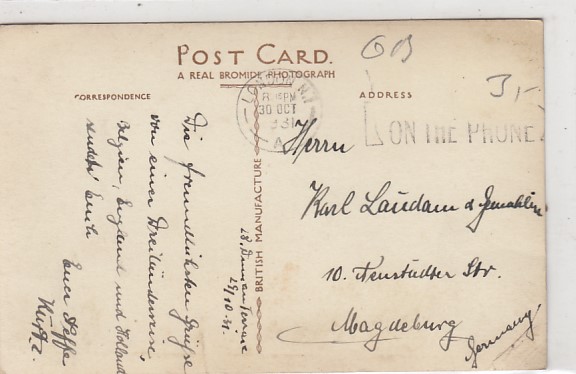 POST CARD.
A REAL BROMIDE PHOTOGRAPH
CORRESPONDENCE
ADDRESS
GB
3,-
LONDON N.1
30 OCT
ON THE PHONE
BRITISH MANUFACTURE
Die freundlichsten Grüße
von einer Dreiländerreise,
Belgien, England und Holland
sendet Euch
Euer Neffe
28, Duncan Terrace
29/10.31.
Herrn
Karl Laudam &
10. Neustädter Str.
Magdeburg
Germany